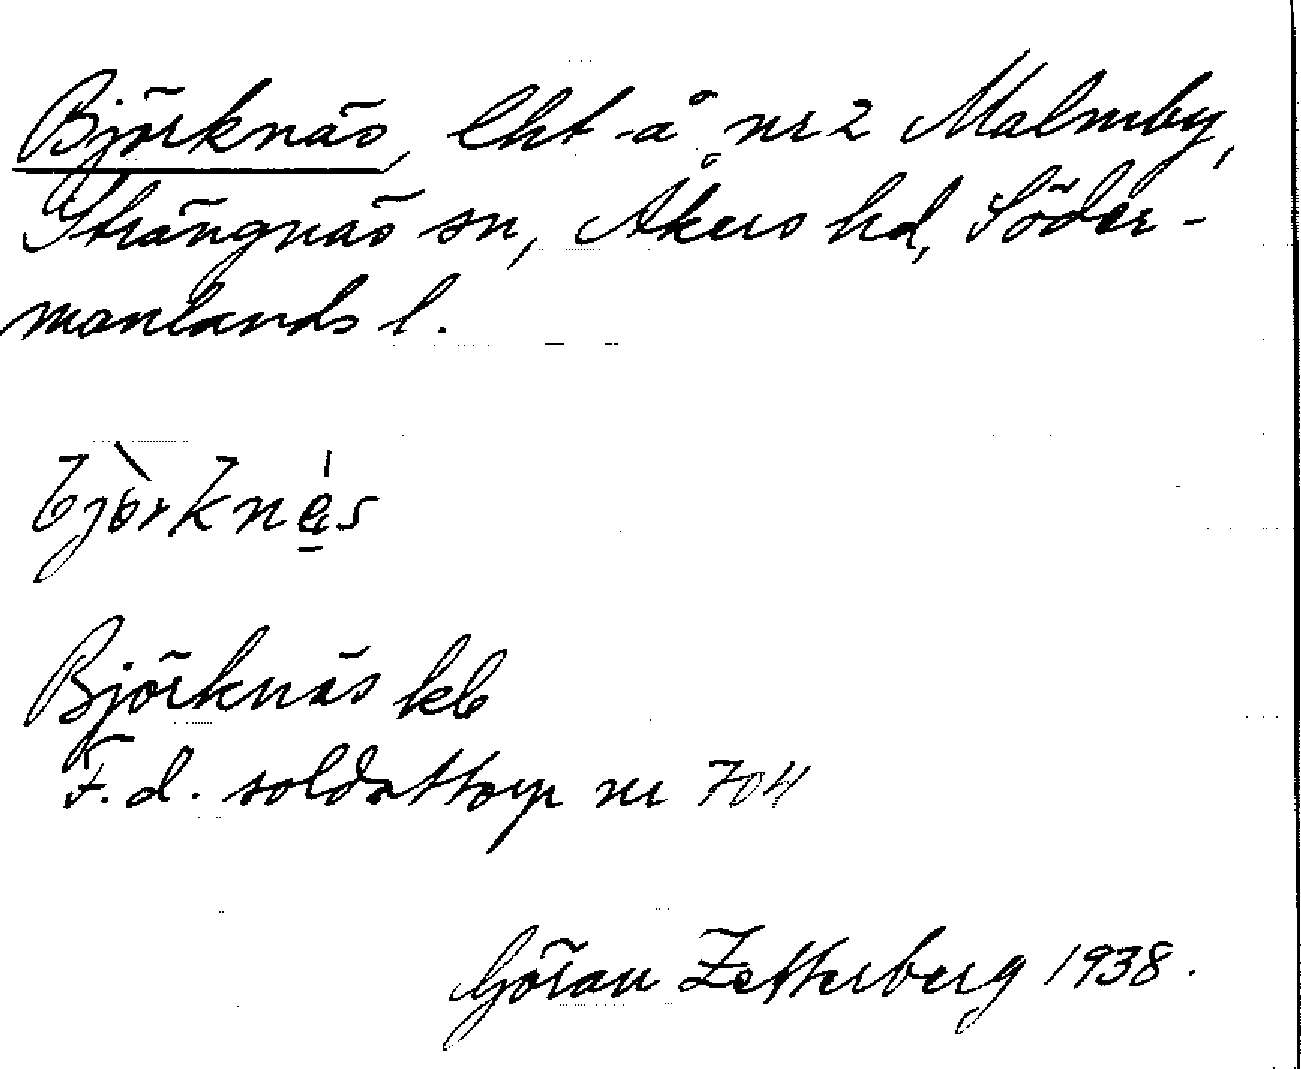 Björknäs, lht å nr 2 Malmby,
Strängnäs sn, Åkers hd, Söder-
manlands l.
Björknäs kb
F.d. soldattorp nr 704
Göran Zetterberg 1938.